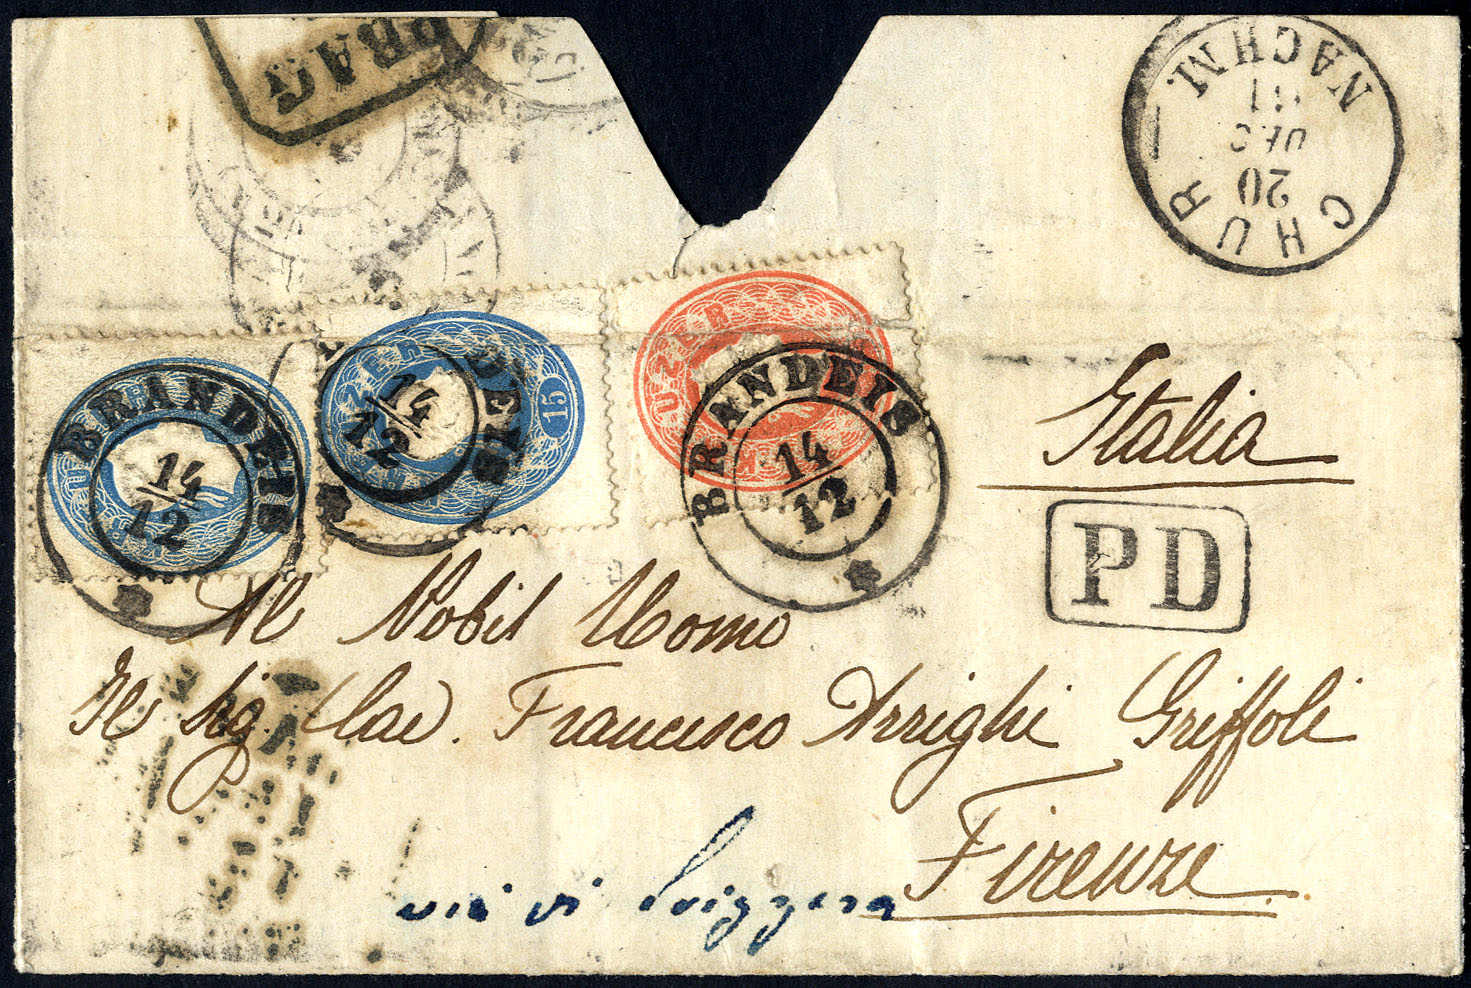 PRAG
CHUR
20
DEC
NACHM.
KREUZER
15
KREUZER
BRANDEIS
14
12
BRANDEIS
14
12
BRANDEIS
14
12
Italia
PD
Al Nobil Uomo
Il Sig. Cav. Francesco Arrighi Griffoli
Firenze
via di Svizzera